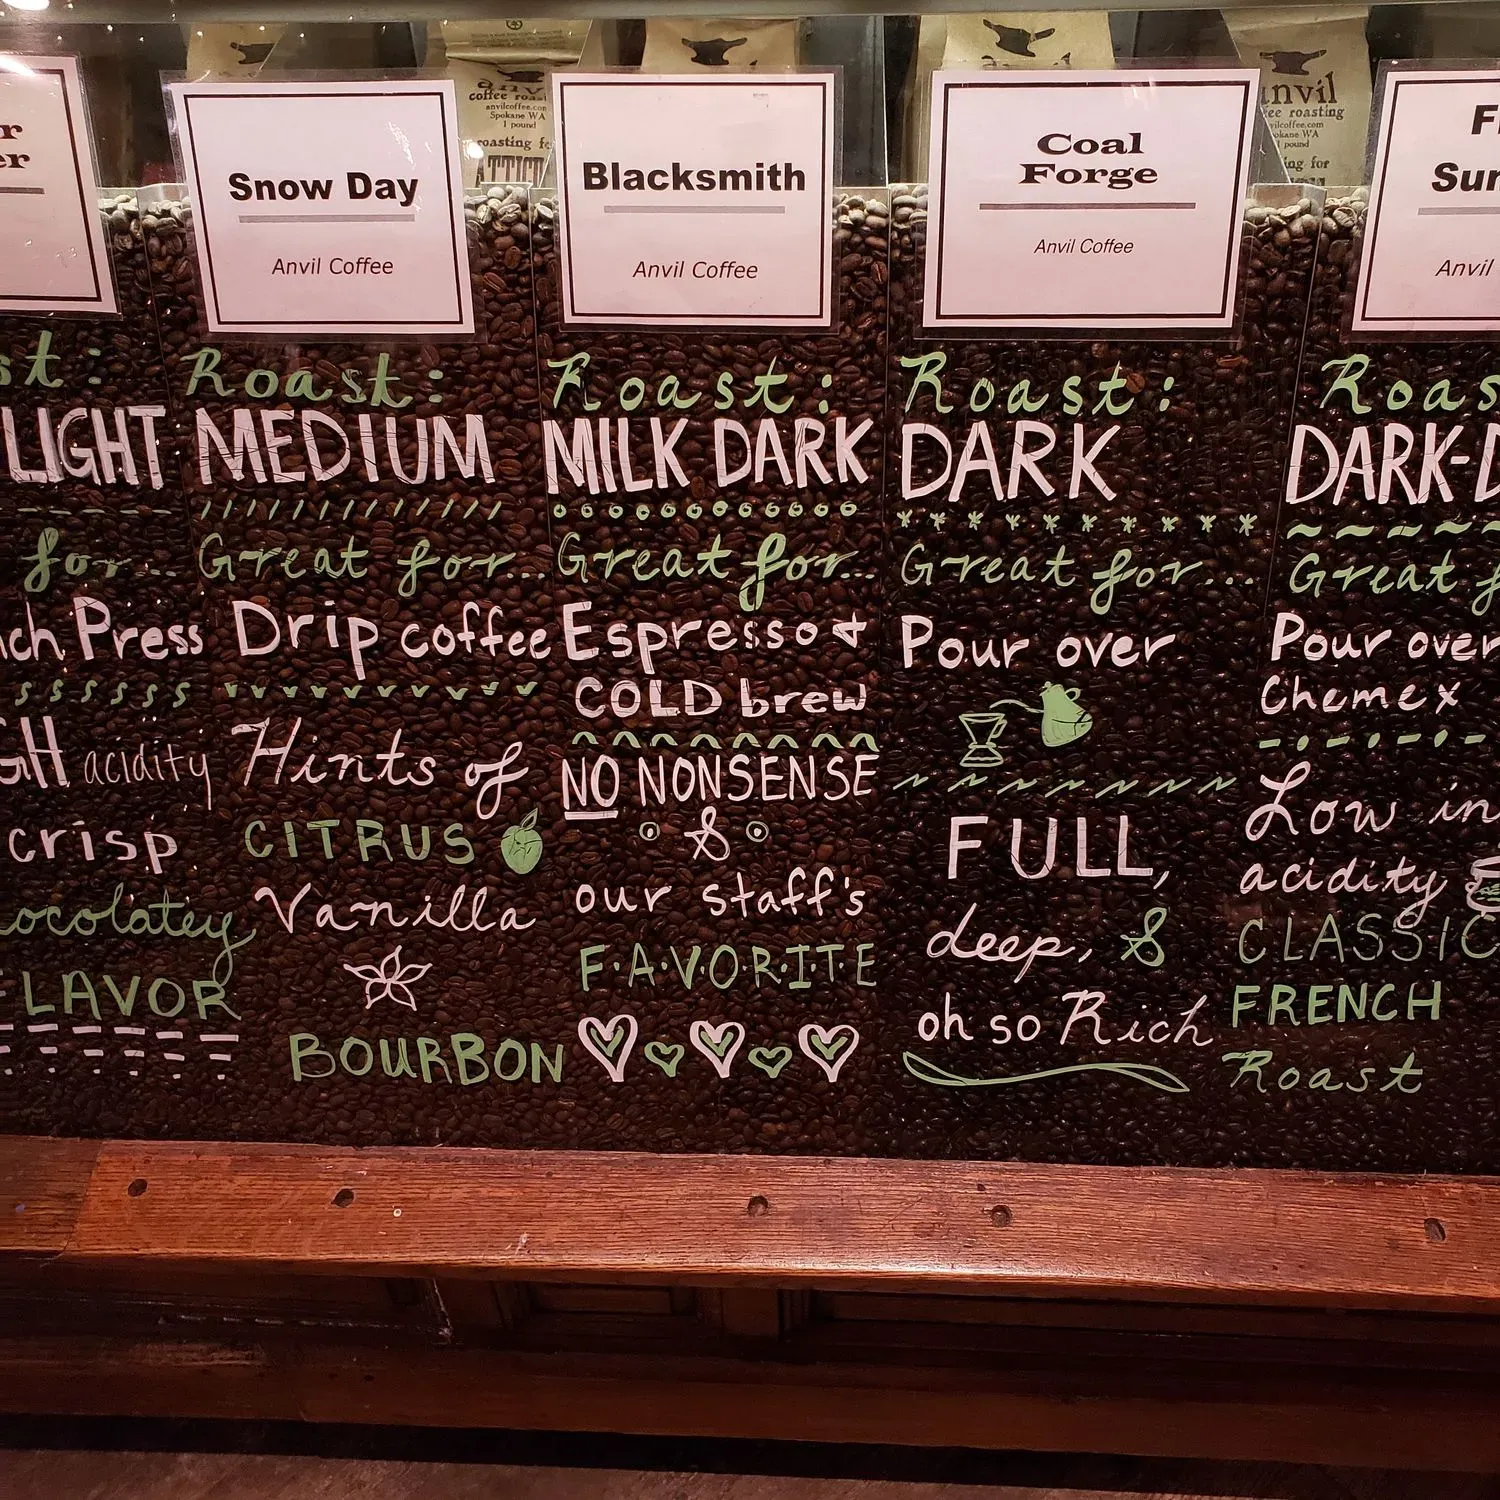 r
er
st:
LIGHT
for...
nch Press
GH acidity
crisp
ocolatey
FLAVOR
Snow Day
Anvil Coffee
Roast:
MEDIUM
Great for...
Drip coffee
Hints of
CITRUS
Vanilla
BOURBON
Blacksmith
Anvil Coffee
Roast:
MILK DARK
Great for...
Espresso &
COLD brew
NO NONSENSE
&
our staff's
F·A·V·O·R·I·T·E
Coal
Forge
Anvil Coffee
Roast:
DARK
Great for...
Pour over
FULL,
deep, &
oh so Rich
Sur
Anvil
Roas
DARK-D
Great f
Pour over
Chemex
Low in
acidity
CLASSIC
FRENCH
Roast
anv
coffee roas
anvilcoffee.com
Spokane WA
1 pound
roasting fo
ATTIC
anvil
anvil
coffee roasting
vilcoffee.com
okane WA
1 pound
ing for